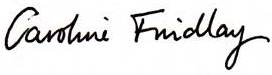 Caroline Findlay